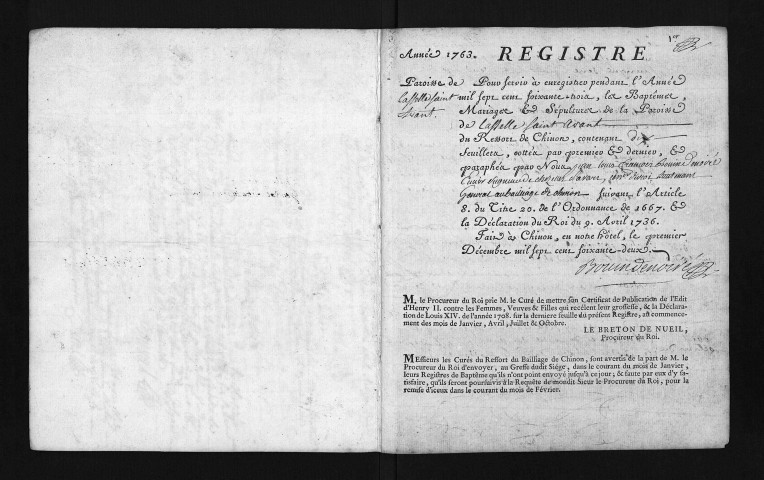 1er
Année 1763. REGISTRE
Paroisse de
la Selle Saint
Avant.
Pour servir à enregistrer pendant l'Année
mil sept cent soixante-trois, les Baptêmes,
Mariages & Sépultures de la Paroisse
de la Selle Saint Avant
du Ressort de Chinon, contenant dix
feuillets, cottés par premier & dernier, &
paraphés par Nous
Lieutenant
General au bailliage de chinon suivant l'Article
8. du Titre 20. de l'Ordonnance de 1667. &
la Déclaration du Roi du 9. Avril 1736.
Fait à Chinon, en notre hôtel, le premier
Décembre mil sept cent soixante-deux.
Bouin de noiré
M. le Procureur du Roi prie M. le Curé de mettre son Certificat de Publication de l'Edit
d'Henry II. contre les Femmes, Veuves & Filles qui recèlent leur grossesse, & la Déclara-
tion de Louis XIV. de l'année 1708. sur la derniere feuille du présent Registre, au commence-
ment des mois de Janvier, Avril, Juillet & Octobre.
LE BRETON DE NUEIL,
Procureur du Roi.
MEssieurs les Curés du Ressort du Bailliage de Chinon, sont avertis de la part de M. le
Procureur du Roi d'envoyer, au Greffe dudit Siége, dans le courant du mois de Janvier,
leurs Registres de Baptême qu'ils n'ont point envoyé jusqu'à ce jour; & faute par eux d'y sa-
tisfaire, qu'ils seront poursuivis à la Requête de mondit Sieur le Procureur du Roi, pour la
remise d'iceux dans le courant du mois de Février.